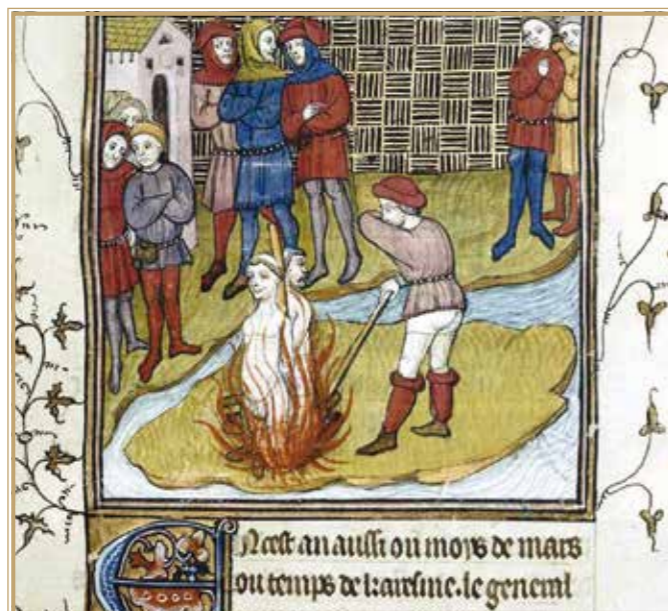 En cest an aussi ou moys de mars
ou temps de karesme. le general